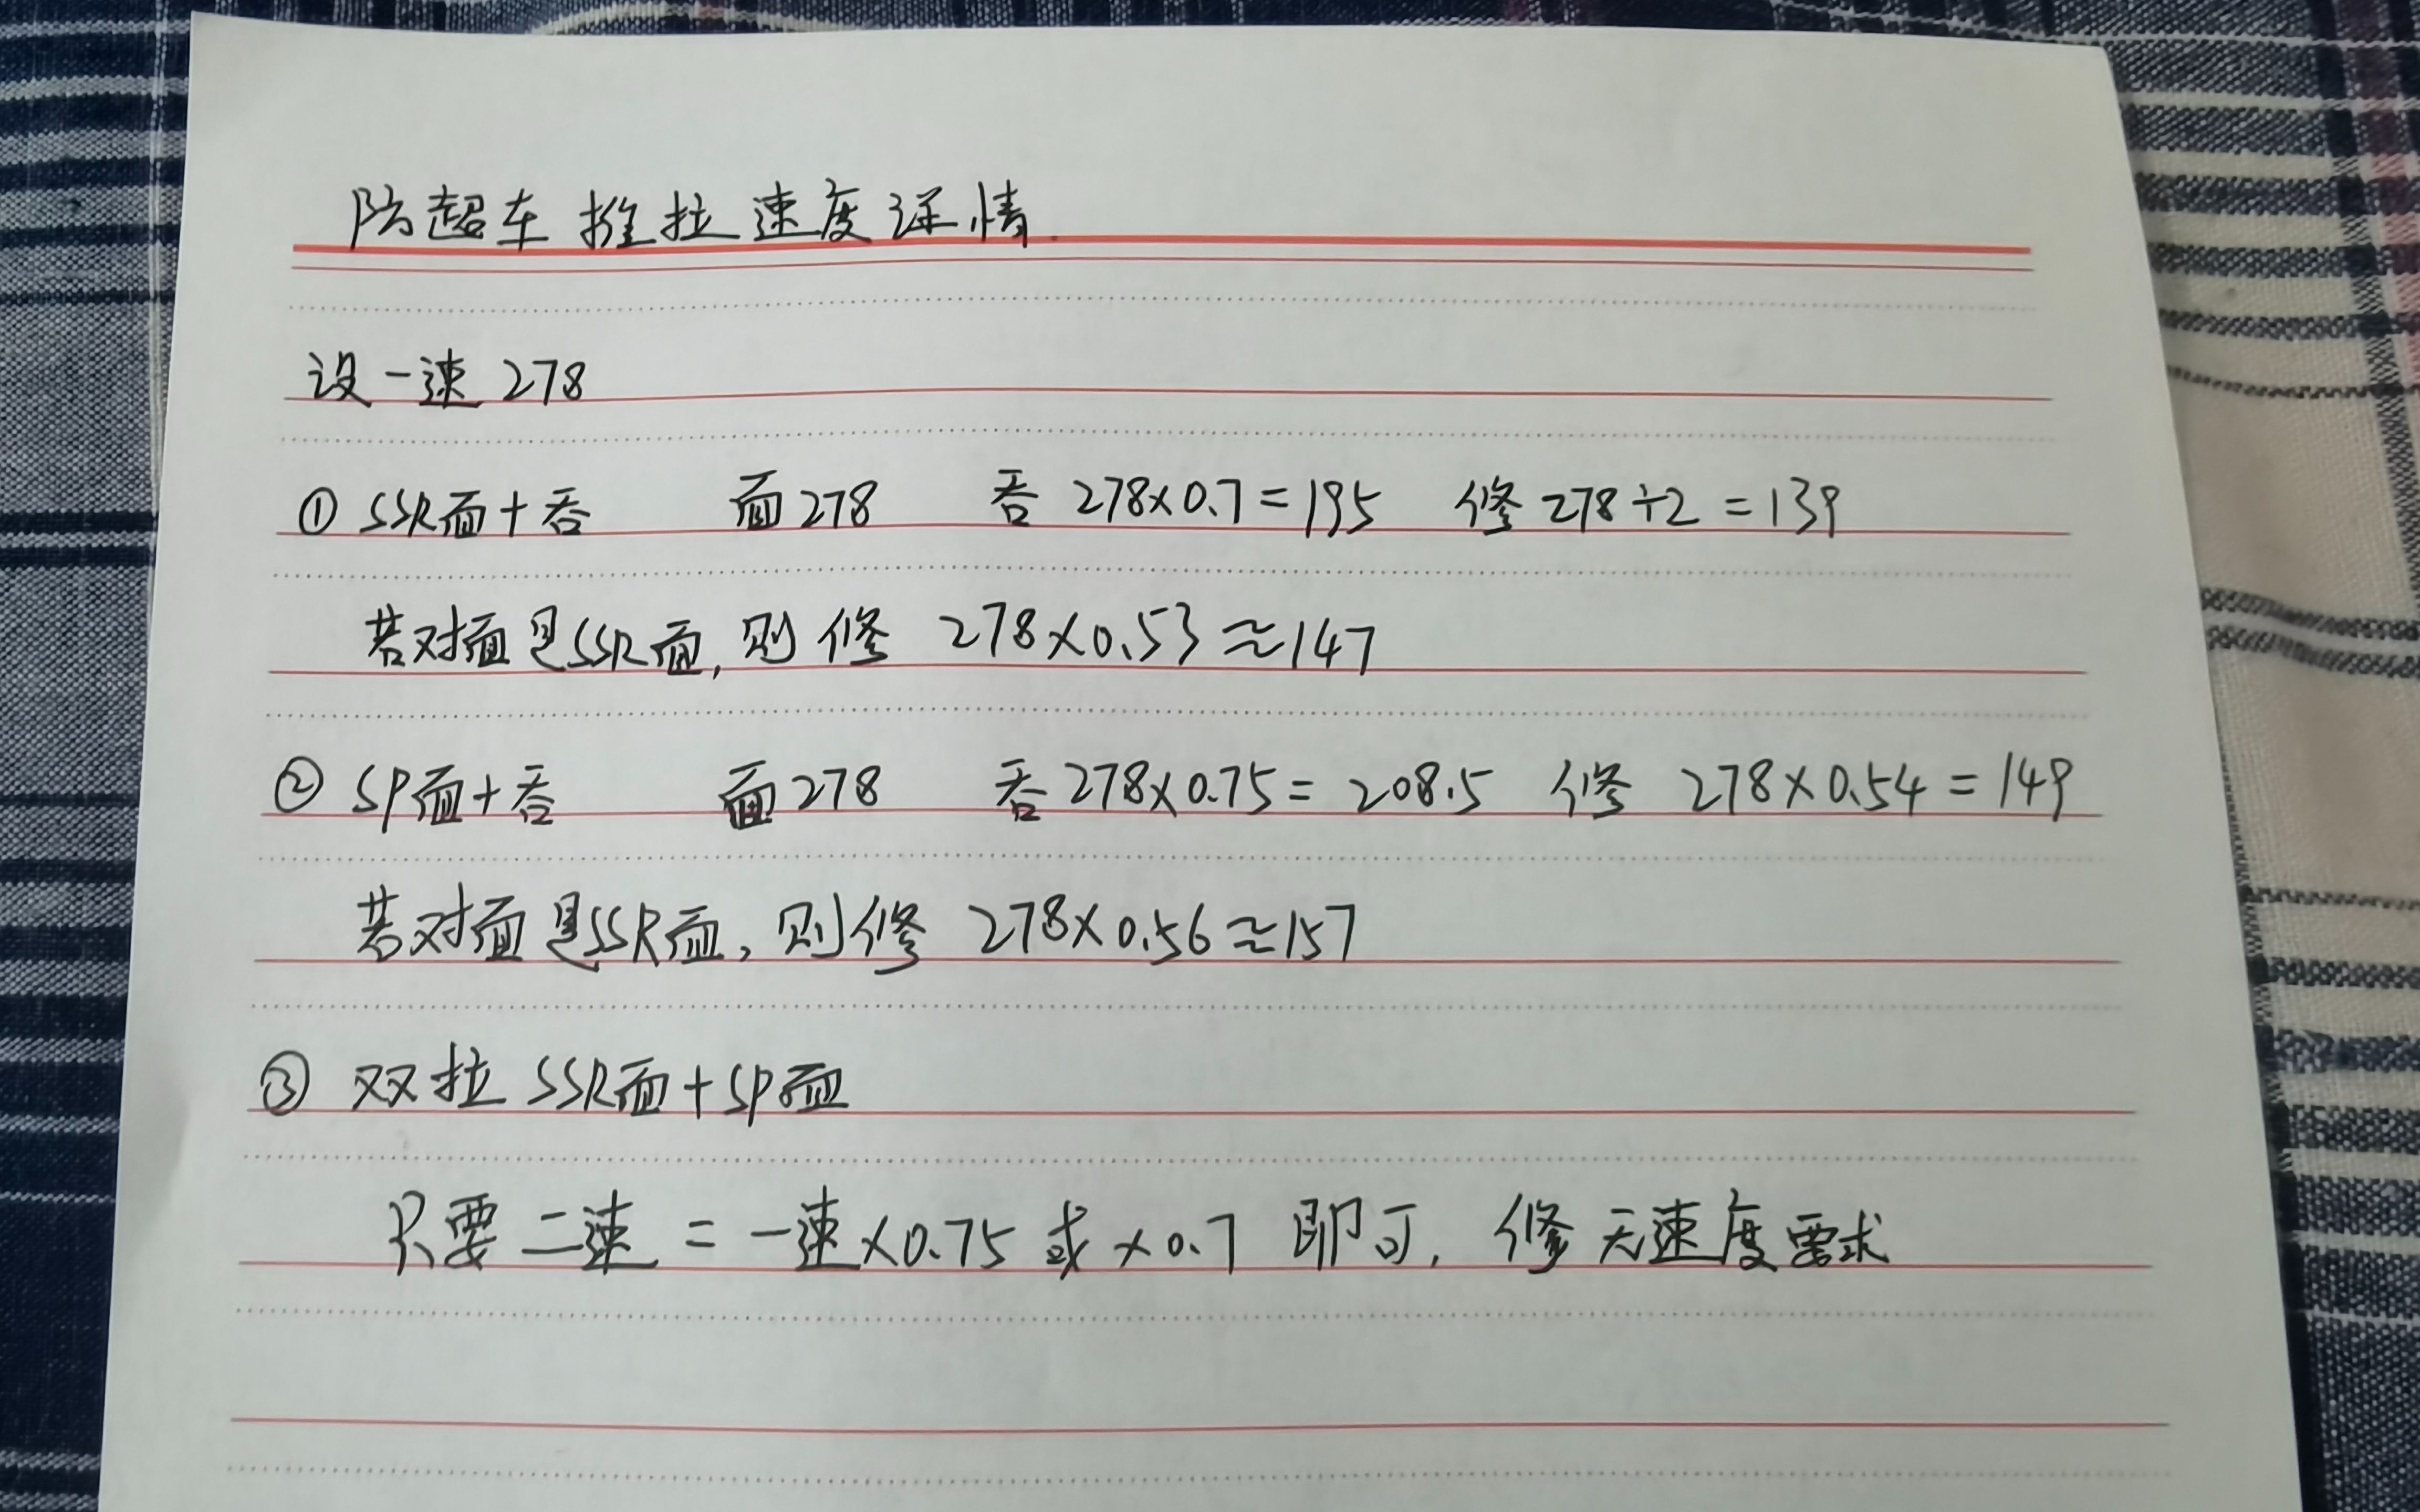 防超车推拉速度详情
设一速 278
① SSR面+吞 面278 吞 278×0.7=195 修 278÷2=139
若对面是SSR面,则修 278×0.53≈147
② SP面+吞 面278 吞 278×0.75=208.5 修 278×0.54=149
若对面是SSR面,则修 278×0.56≈157
③ 双拉 SSR面+SP面
只要二速=一速×0.75 或×0.7 即可,修无速度需求